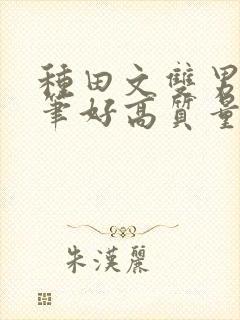 種田文雙男
筆好高質量
朱漢麗